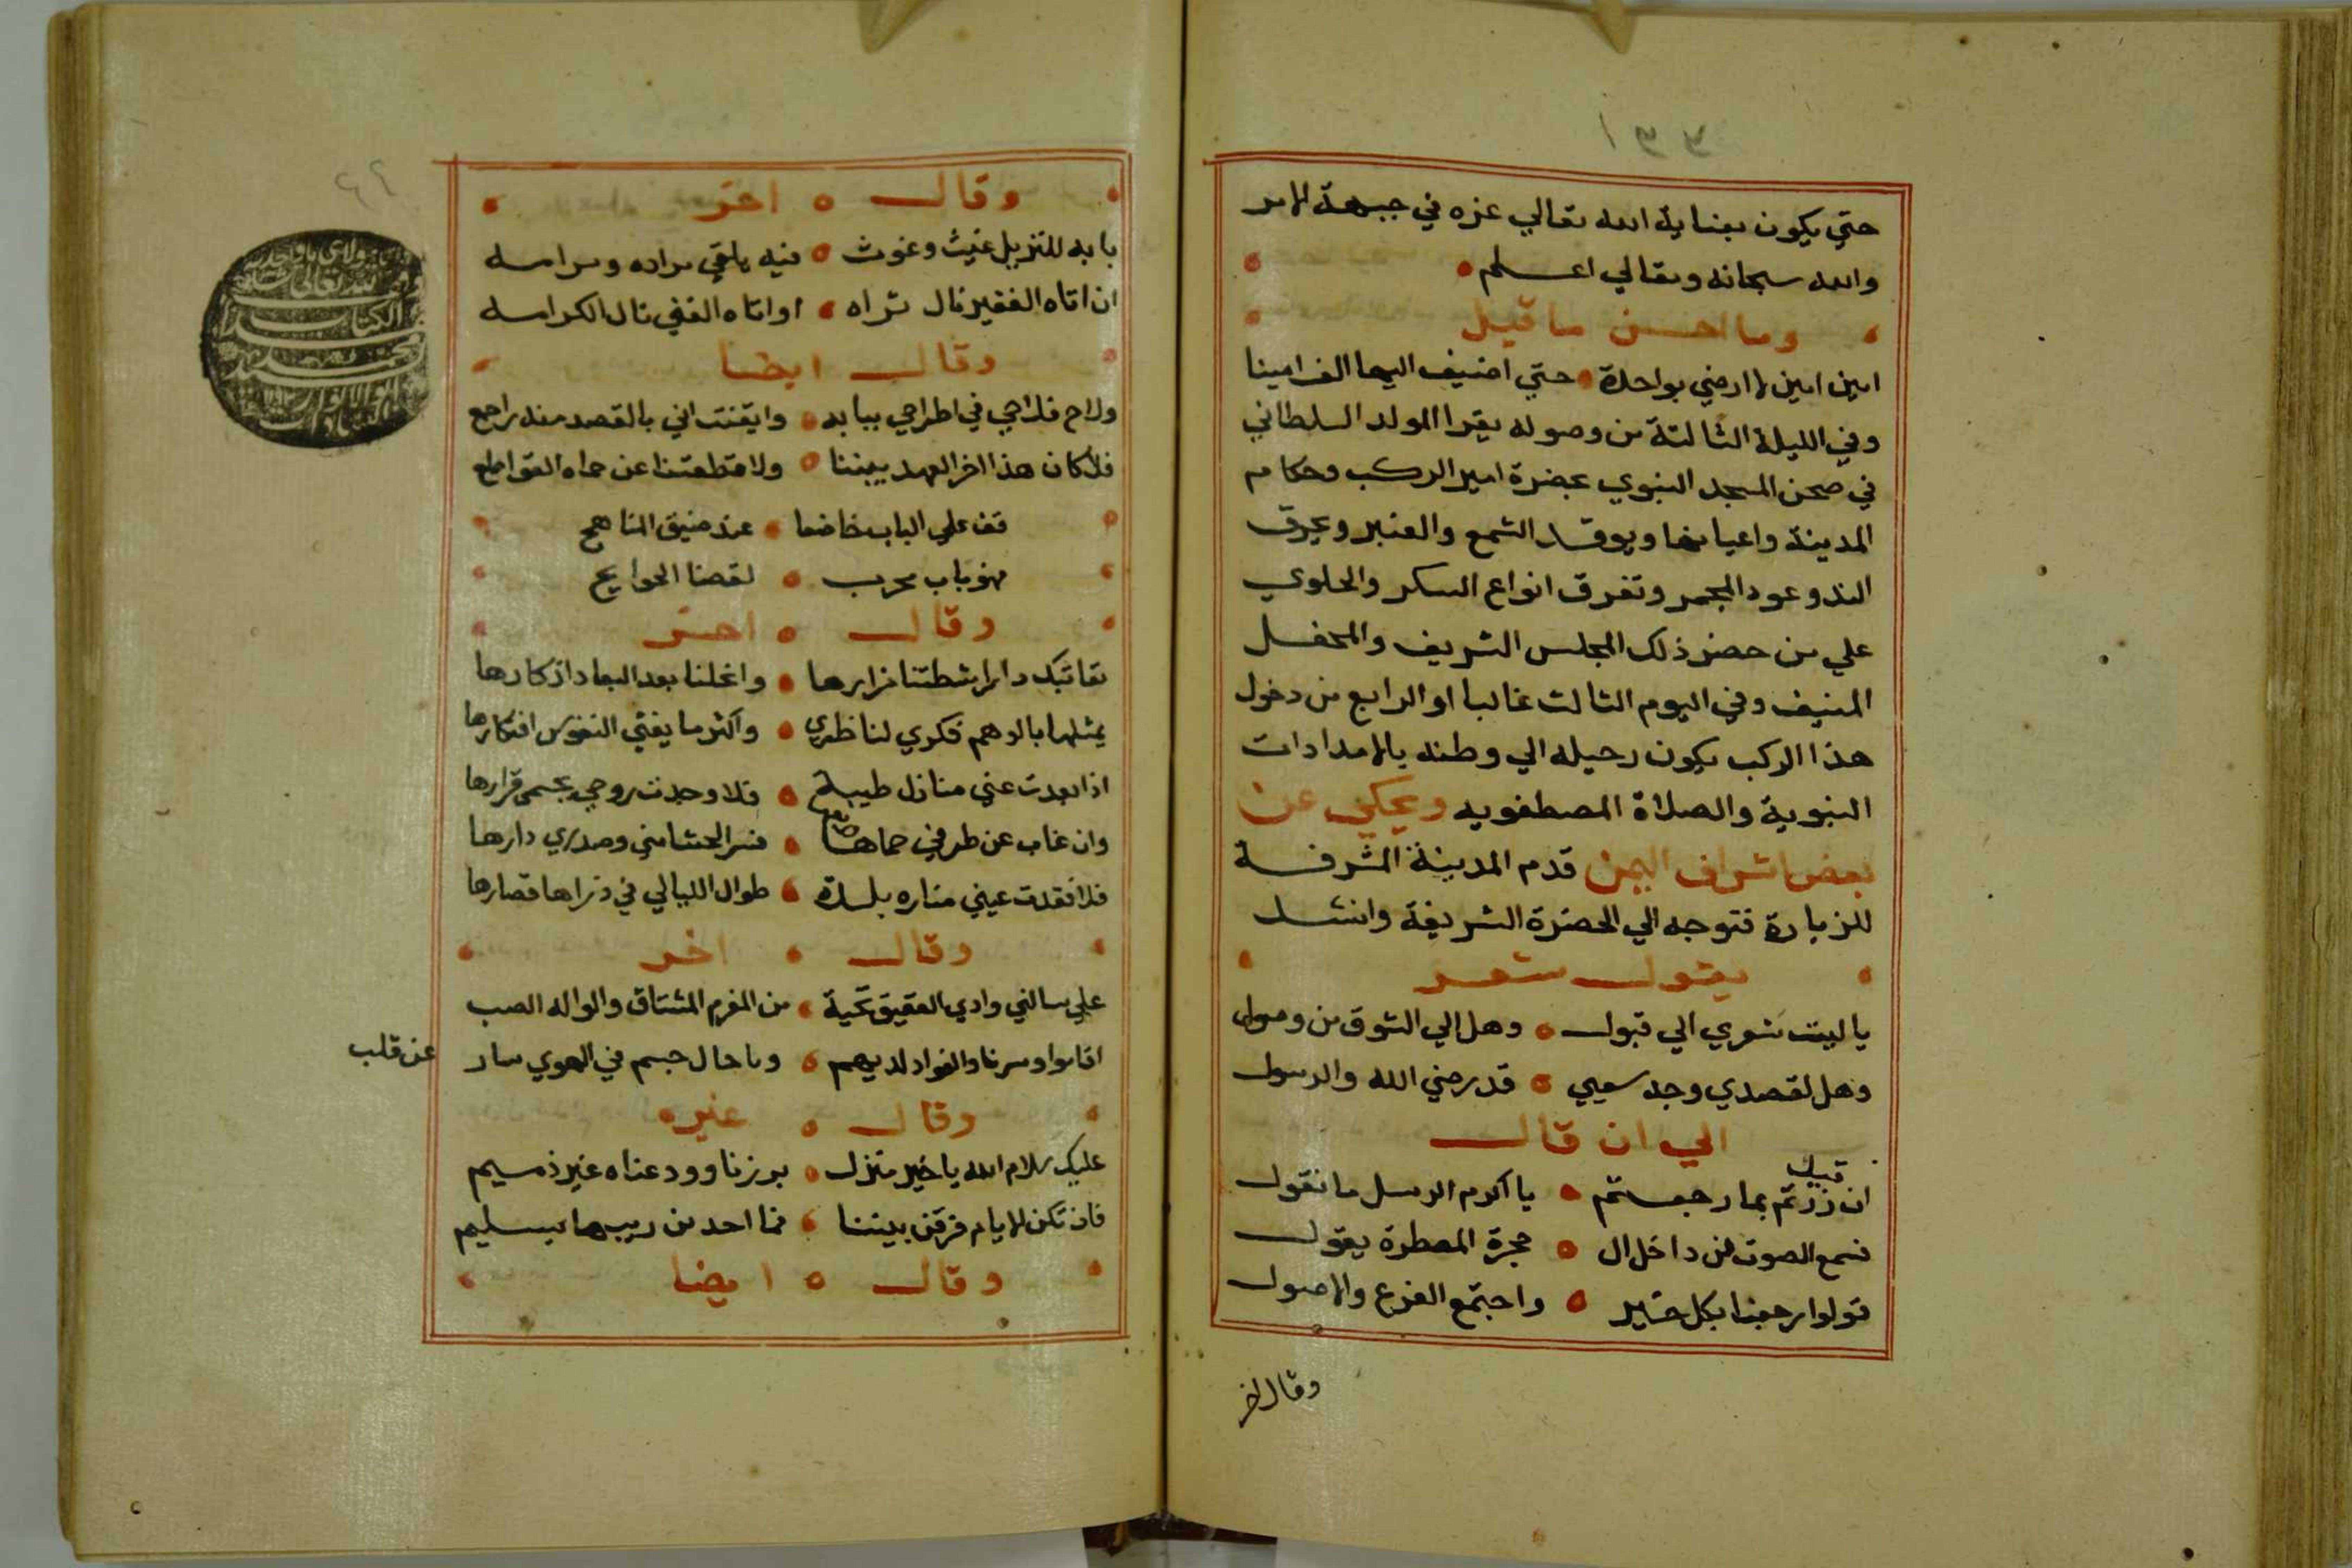 حتي يكون بعناية الله تعالي عزه في جبهة الامر
والله سبحانه وتعالي اعلم
وما احسن ما قيل
امين امين لا ارضي بواحدة حتي اضيف اليها الف امينا
وفي الليلة الثالثة من وصوله يقرا المولد السلطاني
في صحن المسجد النبوي بحضرة امير الركب وحكام
المدينة واعيانها ويوقد الشمع والعنبر ويحرق
الند وعود المجمر وتفرق انواع السكر والحلوي
علي من حضر ذلك المجلس الشريف والمحفل
المنيف وفي اليوم الثالث غالبا او الرابع من دخول
هذا الركب يكون رحيله الي وطنه بالامدادات
النبوية والصلاة المصطفويه ويحكي عن
بعض اشراف اليمن قدم المدينة المشرفة
للزيارة فتوجه الي الحضرة الشريفة وانشد
يقول شعر
يا ليت شوري الي قبول وهل الي الشوق من وصول
وهل لقصدي وجد سعيي قد رضي الله والرسول
الي ان قال
قيل
ان زرتم بما رجعتم يا اكرم الرسل ما نقول
فسمع الصوت من داخل ال حجرة المعطرة يقول
قولوا رجعنا بكل خير واجتمع الفرع والاصول
وقال اخر
وقال اخر
بابه للنزيل غيث وغوث فيه يلقي مراده ومرامه
ان اتاه الفقير نال ثراه او اتاه الغني نال الكرامه
وقال ايضا
ولاح فلاحي في اطراحي ببابه وايقنت اني بالقصد منه راجع
فلا كان هذا اخر العهد بيننا ولا قطعتنا عن حماه القواطع
قف علي الباب خاضعا عند ضيق المناهج
فهو باب مجرب لقضا الحوايج
وقال اخر
نعاتبك دارا شطتنا مزارها واغلنا بعد البعاد اذكارها
يمثلها بالوهم فكري لناظري واكثر ما يفني النفوس افتكارها
اذا بعدت عني منازل طيبة فلا وجدت روحي بجسمي قرارها
وان غاب عن طرفي حماها فسر الحشا مني وصدري دارها
فلا فقدت عيني مناره بلدة طوال الليالي في ذراها قصارها
وقال اخر
علي ساكني وادي العقيق تحية من المغرم المشتاق والواله الصب
اقاموا وسرنا والفواد لديهم وما حال جسم في الهوي سار
عن قلب
وقال غيره
عليك سلام الله يا خير منزل برزنا وودعناه غير ذميم
فان تكن الايام فرقن بيننا فما احد من ريبها بسليم
وقال ايضا